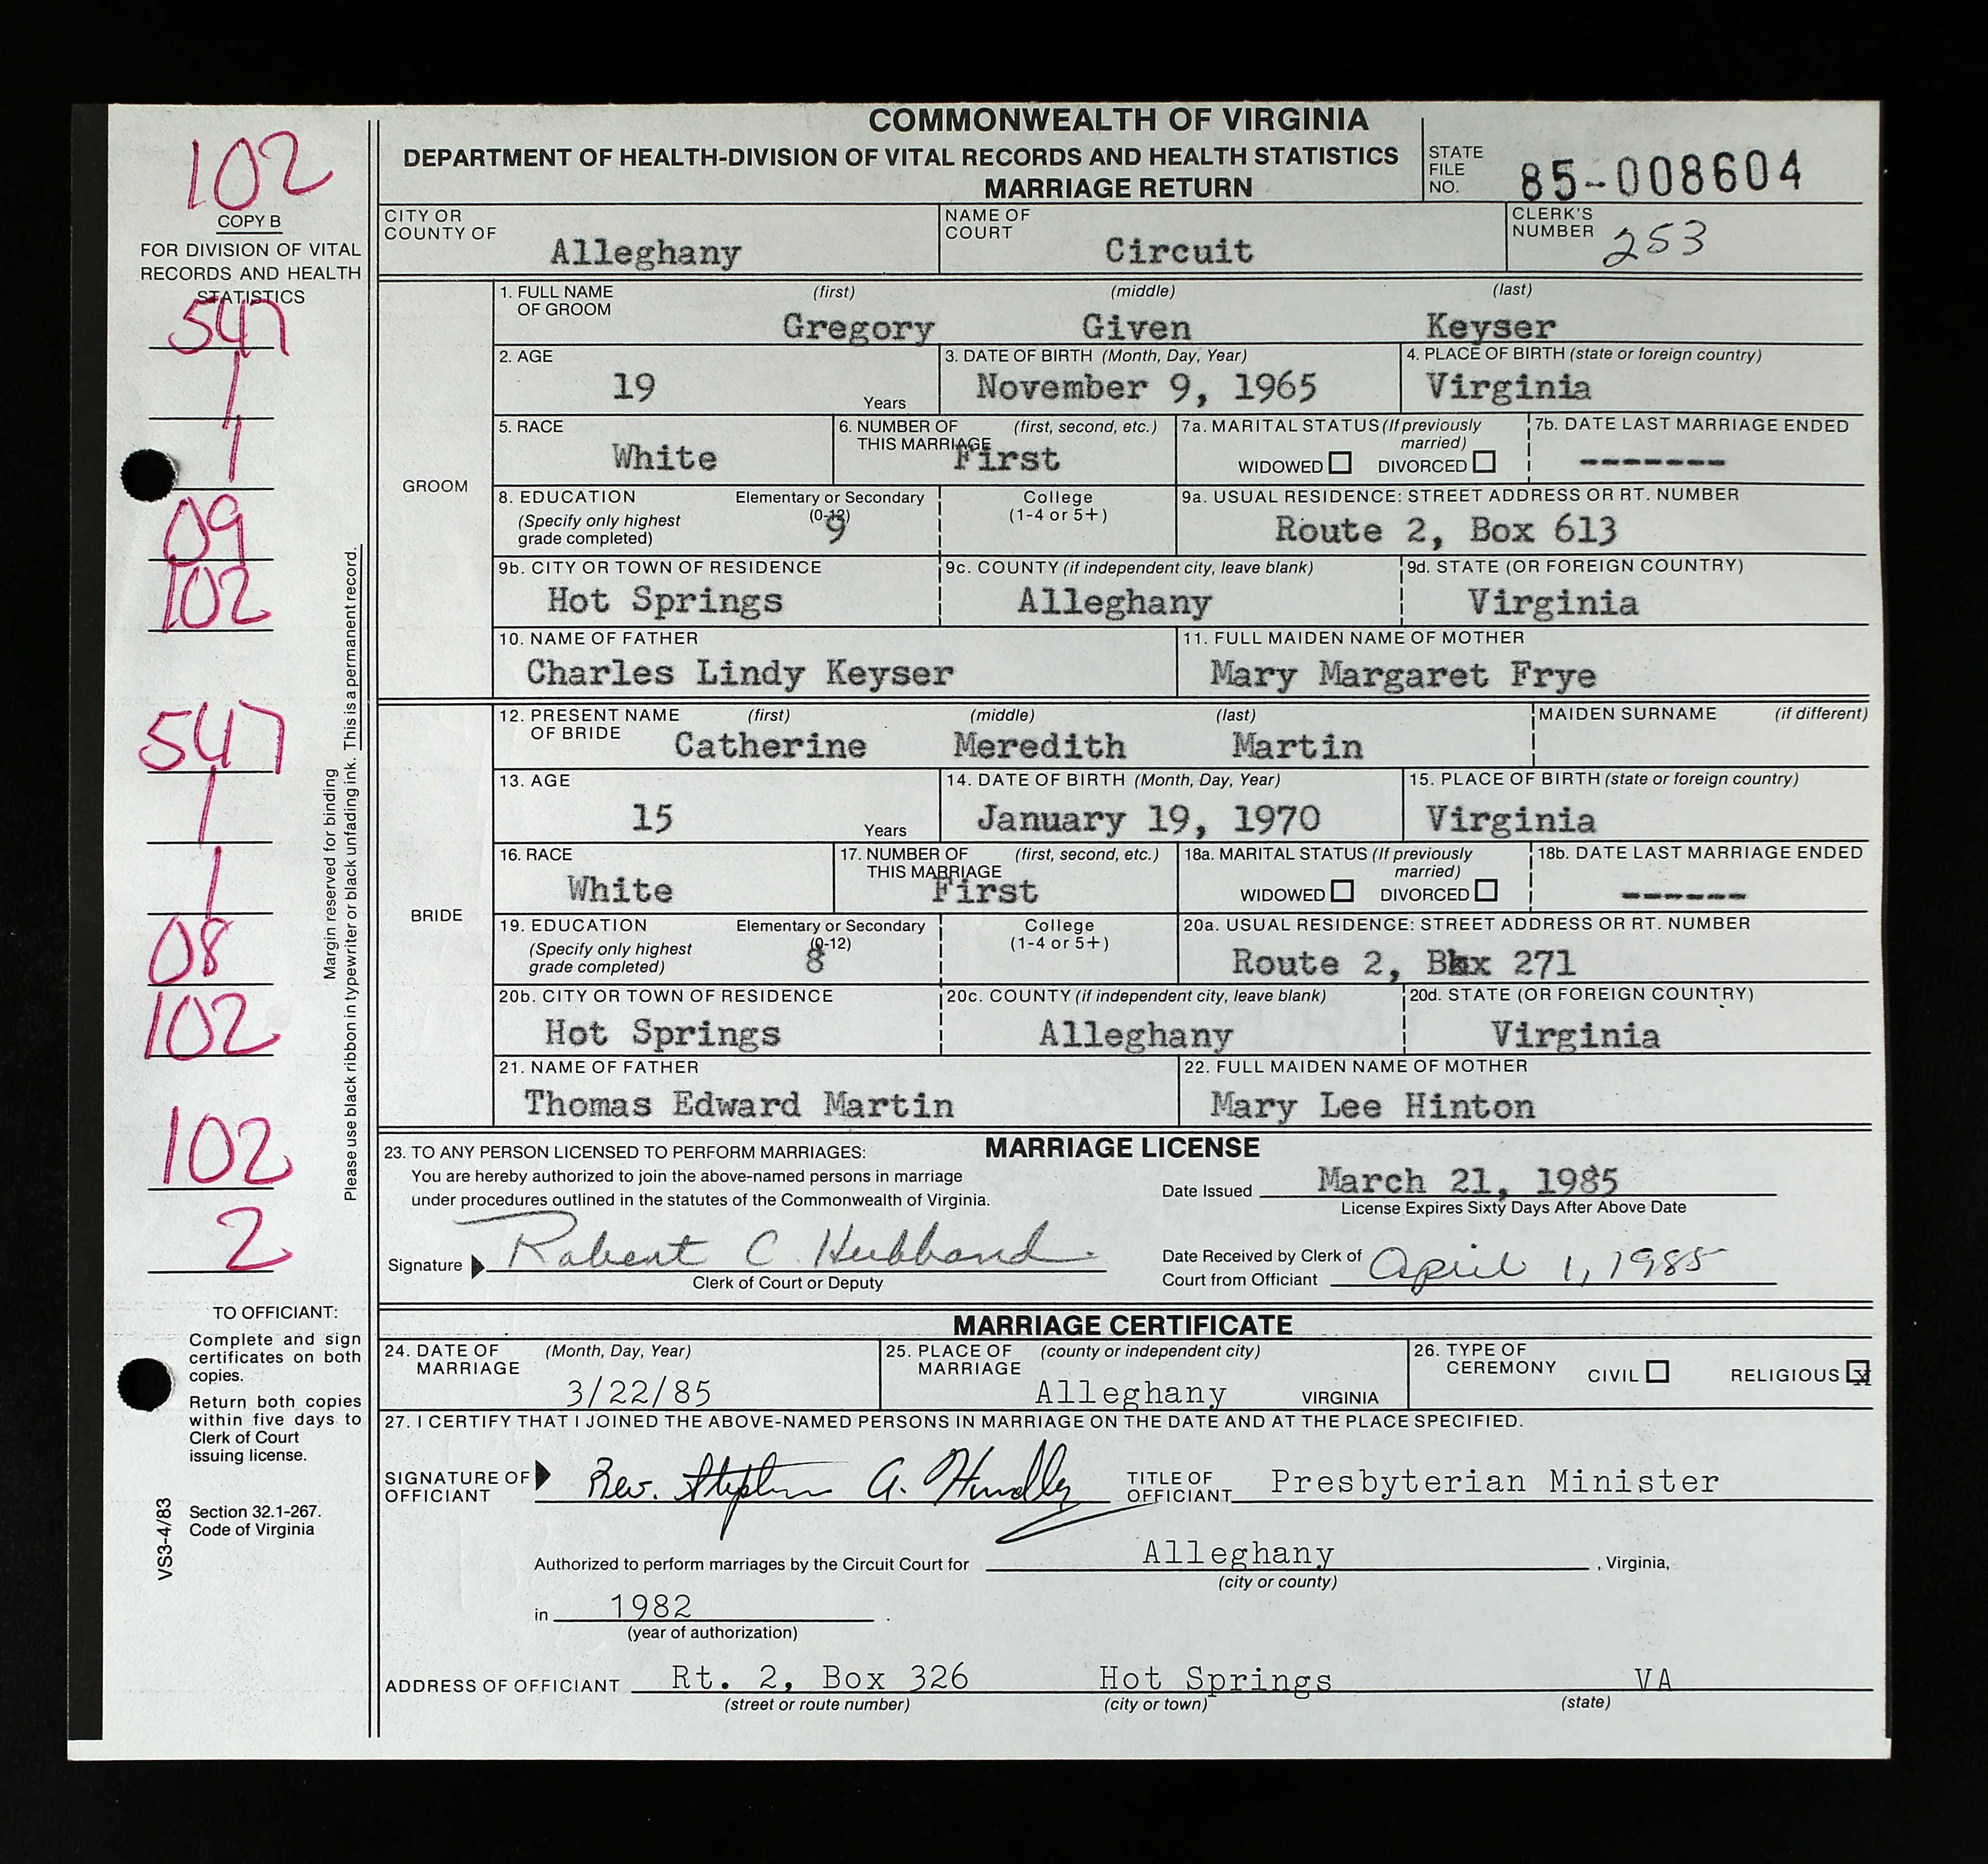 COMMONWEALTH OF VIRGINIA
DEPARTMENT OF HEALTH-DIVISION OF VITAL RECORDS AND HEALTH STATISTICS
MARRIAGE RETURN
STATE FILE NO. 85-008604
102
COPY B
FOR DIVISION OF VITAL
RECORDS AND HEALTH
STATISTICS
547
1
1
09
102
547
1
1
08
102
102
2
Margin reserved for binding
Please use black ribbon in typewriter or black unfading ink. This is a permanent record.
TO OFFICIANT:
Complete and sign
certificates on both
copies.
Return both copies
within five days to
Clerk of Court
issuing license.
Section 32.1-267.
Code of Virginia
VS3-4/83
CITY OR COUNTY OF Alleghany
NAME OF COURT Circuit
CLERK'S NUMBER 253
GROOM
1. FULL NAME OF GROOM (first) (middle) (last)
Gregory Given Keyser
2. AGE 19 Years
3. DATE OF BIRTH (Month, Day, Year) November 9, 1965
4. PLACE OF BIRTH (state or foreign country) Virginia
5. RACE White
6. NUMBER OF THIS MARRIAGE (first, second, etc.) First
7a. MARITAL STATUS (If previously married) WIDOWED DIVORCED
7b. DATE LAST MARRIAGE ENDED -------
8. EDUCATION (Specify only highest grade completed) Elementary or Secondary (0-12) 9 College (1-4 or 5+)
9a. USUAL RESIDENCE: STREET ADDRESS OR RT. NUMBER Route 2, Box 613
9b. CITY OR TOWN OF RESIDENCE Hot Springs
9c. COUNTY (if independent city, leave blank) Alleghany
9d. STATE (OR FOREIGN COUNTRY) Virginia
10. NAME OF FATHER Charles Lindy Keyser
11. FULL MAIDEN NAME OF MOTHER Mary Margaret Frye
BRIDE
12. PRESENT NAME OF BRIDE (first) (middle) (last) Catherine Meredith Martin
MAIDEN SURNAME (if different)
13. AGE 15 Years
14. DATE OF BIRTH (Month, Day, Year) January 19, 1970
15. PLACE OF BIRTH (state or foreign country) Virginia
16. RACE White
17. NUMBER OF THIS MARRIAGE (first, second, etc.) First
18a. MARITAL STATUS (If previously married) WIDOWED DIVORCED
18b. DATE LAST MARRIAGE ENDED ------
19. EDUCATION (Specify only highest grade completed) Elementary or Secondary (0-12) 8 College (1-4 or 5+)
20a. USUAL RESIDENCE: STREET ADDRESS OR RT. NUMBER Route 2, 271
20b. CITY OR TOWN OF RESIDENCE Hot Springs
20c. COUNTY (if independent city, leave blank) Alleghany
20d. STATE (OR FOREIGN COUNTRY) Virginia
21. NAME OF FATHER Thomas Edward Martin
22. FULL MAIDEN NAME OF MOTHER Mary Lee Hinton
MARRIAGE LICENSE
23. TO ANY PERSON LICENSED TO PERFORM MARRIAGES:
You are hereby authorized to join the above-named persons in marriage
under procedures outlined in the statutes of the Commonwealth of Virginia.
Date Issued March 21, 1985
License Expires Sixty Days After Above Date
Signature Robert C. Hubbard
Clerk of Court or Deputy
Date Received by Clerk of Court from Officiant April 1, 1985
MARRIAGE CERTIFICATE
24. DATE OF MARRIAGE (Month, Day, Year) 3/22/85
25. PLACE OF MARRIAGE (county or independent city) Alleghany VIRGINIA
26. TYPE OF CEREMONY CIVIL RELIGIOUS X
27. I CERTIFY THAT I JOINED THE ABOVE-NAMED PERSONS IN MARRIAGE ON THE DATE AND AT THE PLACE SPECIFIED.
SIGNATURE OF OFFICIANT Rev. Stephen A. Hundley
TITLE OF OFFICIANT Presbyterian Minister
Authorized to perform marriages by the Circuit Court for Alleghany, Virginia,
(city or county)
in 1982.
(year of authorization)
ADDRESS OF OFFICIANT Rt. 2, Box 326 Hot Springs VA
(street or route number) (city or town) (state)